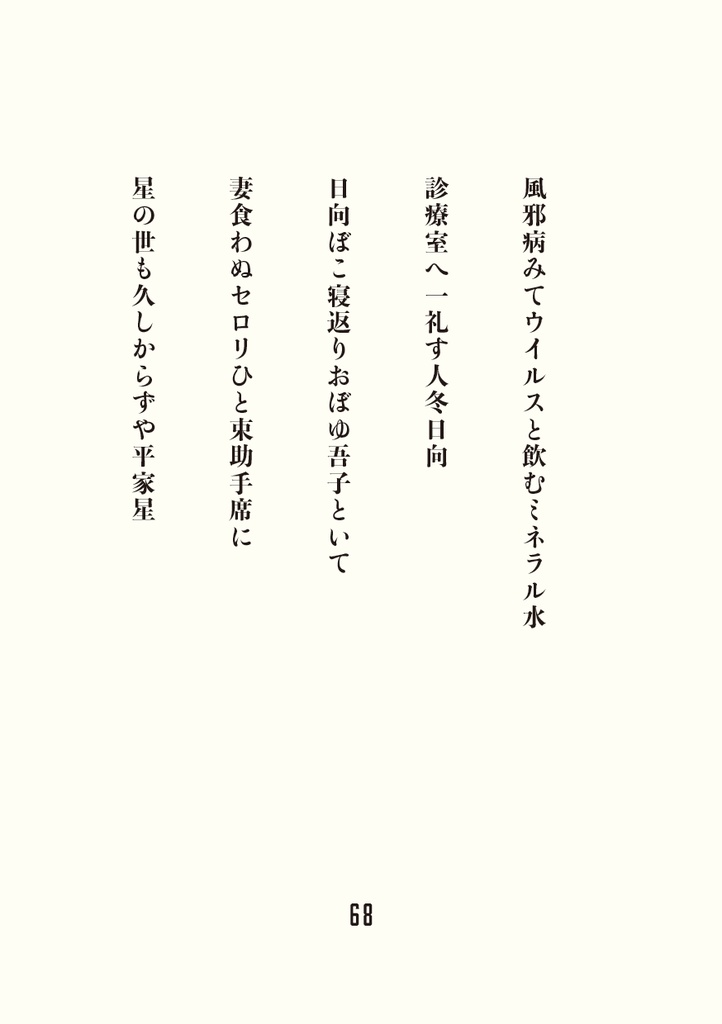 風邪病みてウイルスと飲むミネラル水
診療室へ一礼す人冬日向
日向ぼこ寝返りおぼゆ吾子といて
妻食わぬセロリひと束助手席に
星の世も久しからずや平家星
68